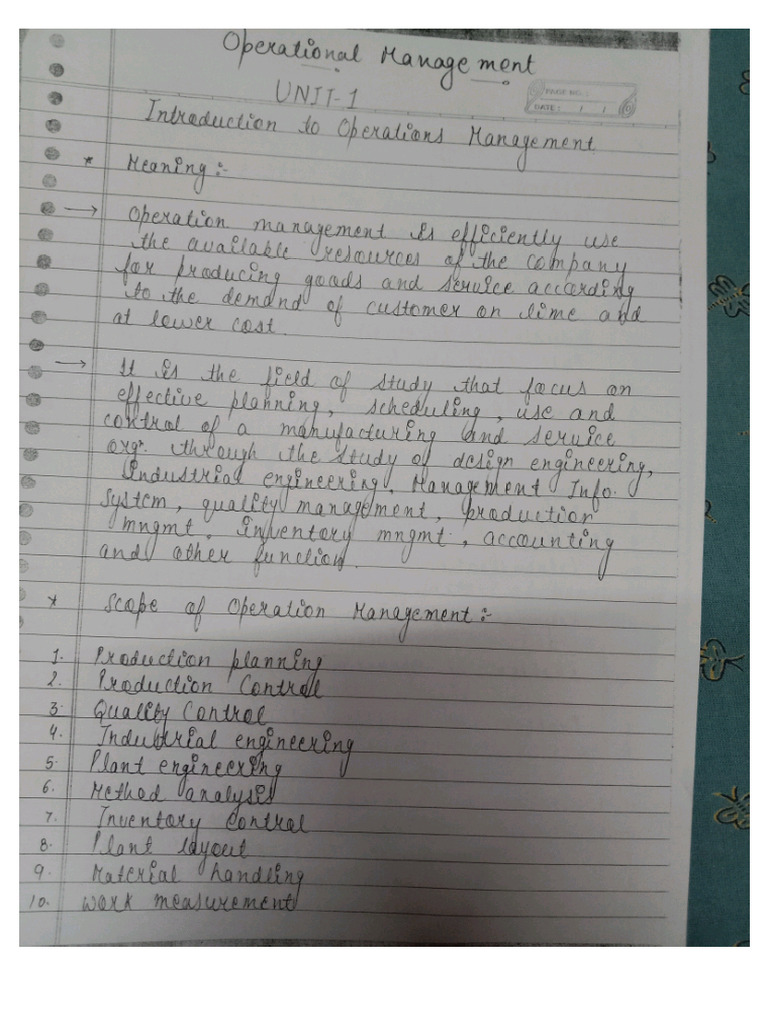 Operational Management
UNIT-1
PAGE NO.:
DATE: / /
Introduction to Operations Management
* Meaning :-
→ Operation management is efficiently use
the available resources of the company
for producing goods and service according
to the demand of customer on time and
at lower cost.
→ It is the field of study that focus on
effective planning, scheduling, use and
control of a manufacturing and service
orgn. through the study of design engineering,
industrial engineering, Management Info.
System, quality management, production
mngmt, inventory mngmt, accounting
and other function.
* Scope of Operation Management :-
1. Production planning
2. Production Control
3. Quality Control
4. Industrial engineering
5. Plant engineering
6. Method analysis
7. Inventory control
8. Plant layout
9. Material handling
10. work measurement